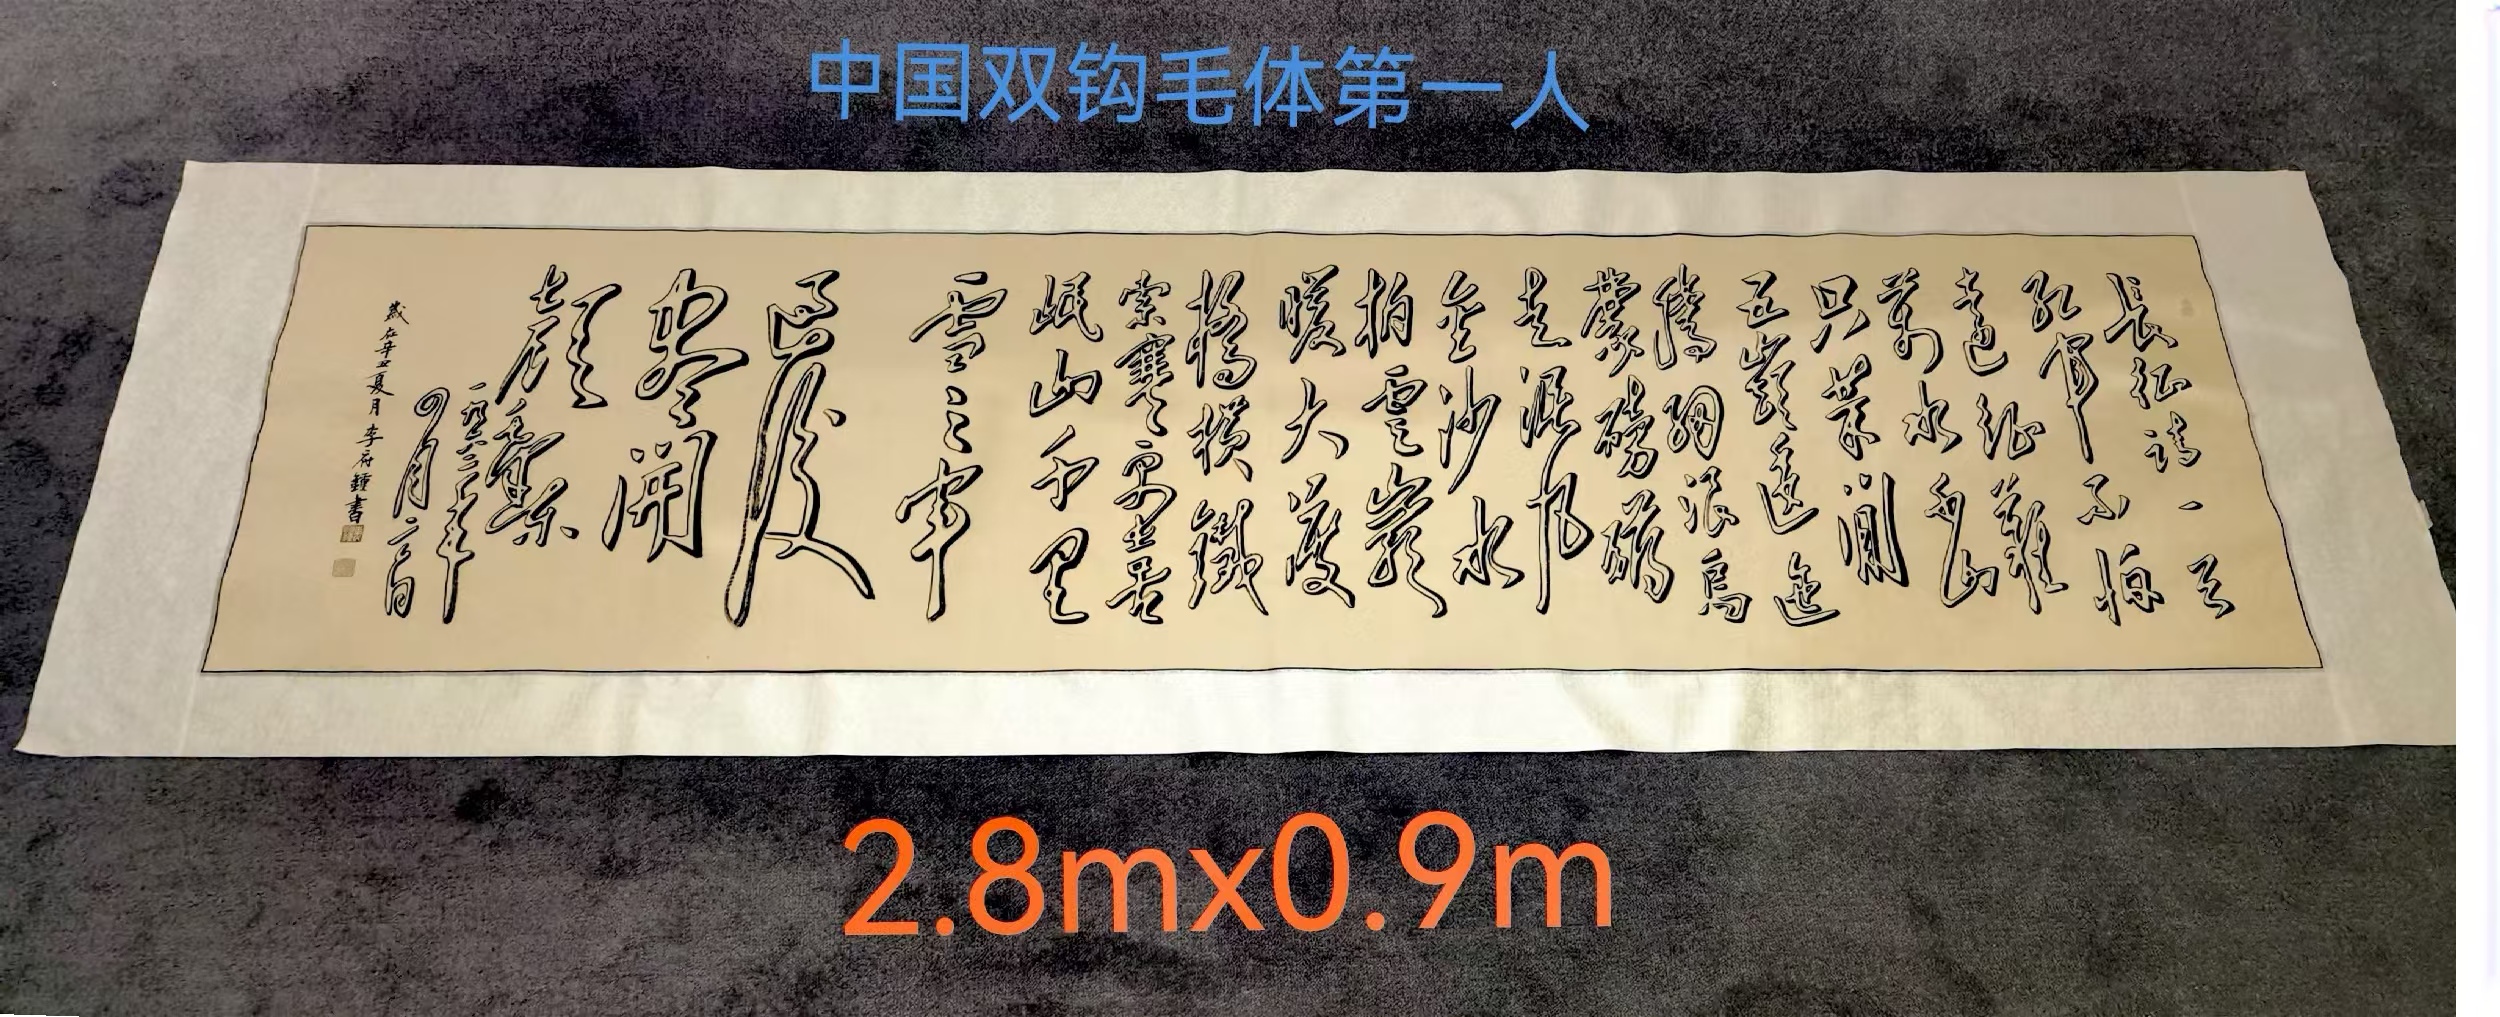 中国双钩毛体第一人
长征诗一首
红军不怕
远征难
万水千山
只等闲
五岭逶迤
腾细浪乌
蒙磅礴
走泥丸
金沙水
拍云岩
暖大渡
桥横铁
索寒更喜
岷山千里
雪三军
过后
尽开
颜
毛泽东
一九六二年
四月二十日
歲在辛丑夏月李府鍾書
2.8mx0.9m